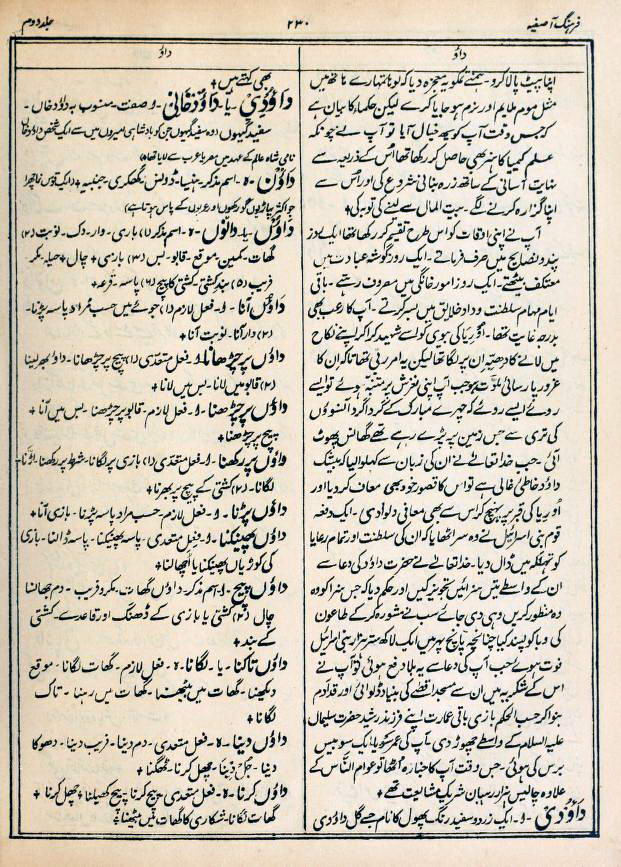 فرہنگ آصفیہ
۲۳۰
جلد دوم
داؤ
داؤ
اپنا پیٹ پالا کرو۔ ہمنے تمکو یہ معجزہ دیا کہ لوہا تمہارے ہاتھ میں
مثل موم ملایم اور نرم ہو جایا کرے لیکن حکما کا بیان ہے
کہ جس وقت آپ کو یہ خیال آیا تو آپ نے چونکہ
علم کیمیا کا ہنر بھی حاصل کر رکھا تھا اُس کے ذریعہ سے
نہایت آسانی کے ساتھ زرہ بنانی شروع کی اور اُس سے
اپنا گزارہ کرنے لگے۔ بیت المال سے لینے کی توبہ کی ✦
آپ نے اپنی اوقات کو اس طرح تقسیم کر رکھا تھا ایک روز
پند و نصایح میں صرف فرماتے۔ ایک روز گوشۂ عبادت میں
معتکف بیٹھتے۔ ایک روز امور خانگی میں مصروف رہتے۔ باقی
ایام مہام سلطنت و داد خلایق میں بسر کرتے۔ آپ کا رعب بھی
بدرجہ غایت تھا۔ اُوریا کی بیوی کو اسے شہید کرا کر اپنے نکاح
میں لانے کا دھبّہ ان پر لگا تھا لیکن یہ امر ربی تھا تاکہ ان کا
غرور پارسائی ٹوٹے جب آپ اپنی لغزش پر متنبہ ہوئے تو ایسے
روئے ایسے روئے کہ چہرے مبارک کے گرداگرد آنسوؤں
کی تری سے جس زمین پر پڑے رہے تھے گھانس پھوٹ
آئی۔ جب خدا تعالےٰ نے ان کی زبان سے کہلوا لیا کہ بیشک
داؤد خاطی غاطی ہے تو اس کا قصور خود بھی معاف کر دیا اور
اُوریا کی قبر پر پہنچ کر اُس سے بھی معافی دلوا دی۔ ایک دفعہ
قوم بنی اسرائیل نے وہ سر اٹھایا کہ ان کی سلطنت اور تمام رعایا
کو تہلکہ میں ڈال دیا۔ خدا تعالےٰ نے حضرت داؤد کی دعا سے
ان کے واسطے تین سزائیں تجویز کیں اور حکم دیا کہ جس سزا کو وہ
منظور کریں وہی دی جائے سب نے مشورہ کر کے طاعون
کی وبا کو پسند کیا چنانچہ پانچ پہر میں ایک لاکھ ستر ہزار بنی اسرائیل
فوت ہوئے جب آپ کی دعا سے یہ بلا دفع ہوئی تو آپ نے
اس کے شکریہ میں ان سے مسجد اقصےٰ کی بنیاد ڈلوائی اور قد آدم
بنوا کر حسب الحکم باری باقی عمارت اپنے فرزند رشید حضرت سلیمان
علیہ السلام کے واسطے چھوڑ دی۔ آپ کی عمر سو یا ایک سو بیس
برس کی ہوئی۔ جس وقت آپ کا جنازہ اٹھا تو عوام الناس کے
علاوہ چالیس ہزار رہبان شریک مشایعت تھے ✦
داؤدی۔ و۔ ایک زرد و سفید رنگ پھول کا نام جسے گل داؤدی
بھی کہتے ہیں ✦
داؤدی۔ یا۔ داؤد خانی۔ و۔ صفت۔ منسوب بہ داؤد خاں۔
سفید گیہوں (وہ سفید گیہوں جن کو بادشاہی امیروں میں سے ایک شخص داؤد خاں
نامی شاہ عالم کے عہد میں مصر یا عرب سے لایا تھا) ✦
داؤں۔ ہ۔ اسم مذکر۔ ہنسیا۔
جو اکثر پہاڑیوں گورکھوں اور عربوں کے پاس ہوتا ہے)
داؤں۔ یا۔ دانوں۔ ہ۔ اسم مذکر (۱) باری۔ وار۔ دک۔ نوبت (۲)
گھات۔ کمین۔ موقع۔ قابو۔ بس (۳) بازی ✦ چال ✦ حیلہ۔ مکر۔
فریب (۵) بند کشتی۔ کشتی کا پیچ (۶) پاسہ۔ قرعہ ✦
داؤں آنا۔ و۔ فعل لازم (۱) جوئے میں حسب مراد پاسہ پڑنا۔
(۲) دار آنا۔ نوبت آنا ✦
داؤں پر چڑھانا۔ و۔ فعل متعدی (۱) پیچ پر چڑھانا۔ داؤ بھر لینا
(۲) قابو میں لانا۔ بس میں لانا ✦
داؤں پر چڑھنا۔ و۔ فعل لازم۔ قابو پر چڑھنا۔ بس میں آنا ✦
پیچ پر چڑھنا ✦
داؤں پر رکھنا۔ و۔ فعل متعدی (۱) بازی پر لگانا۔ شرط پر رکھنا۔
لگانا۔ (۲) کشتی کے پیچ پر بھرنا ✦
داؤں پڑنا۔ و۔ فعل لازم۔ حسب مراد پاسہ پڑنا۔ بازی آنا ✦
داؤں پھینکنا۔ و۔ فعل متعدی۔ پاسہ پھینکنا۔ پاسہ ڈالنا۔ بازی
کی کوڑیاں پھینکنا یا اُچھالنا ✦
داؤں پیچ۔ و۔ اسم مذکر۔ داؤں گھات۔ مکر و فریب۔ دم جھانسا
چال (۲) کشتی یا بازی کے ڈھنگ اور قاعدے۔ کشتی
کے بند ✦
داؤں تاکنا۔ یا۔ لگانا۔ ہ۔ فعل لازم۔ گھات لگانا۔ موقع
دیکھنا۔ گھات میں بیٹھنا۔ گھات میں رہنا۔ تاک
لگانا ✦
داؤں دینا۔ و۔ فعل متعدی۔ دم دینا۔ فریب دینا۔ دھوکا
دینا۔ جُل دینا۔ چھل کرنا۔ ٹھگنا ✦
داؤں کرنا۔ ہ۔ فعل متعدی۔ پیچ کرنا۔ پیچ کھیلنا ✦ چھل کرنا ✦
گھات لگانا۔ شکاری کا گھات میں بیٹھنا ✦